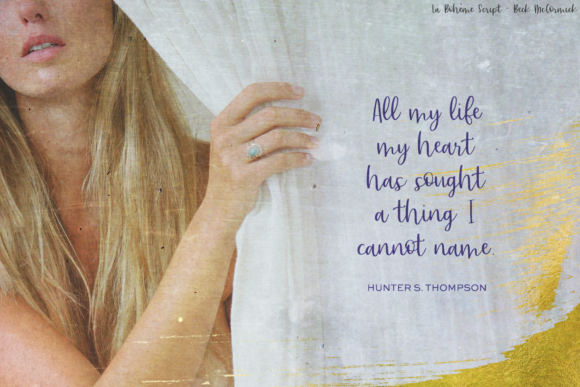 La Bohème Script - Beck McCormick
All my life
my heart
has sought
a thing I
cannot name.
HUNTER S. THOMPSON